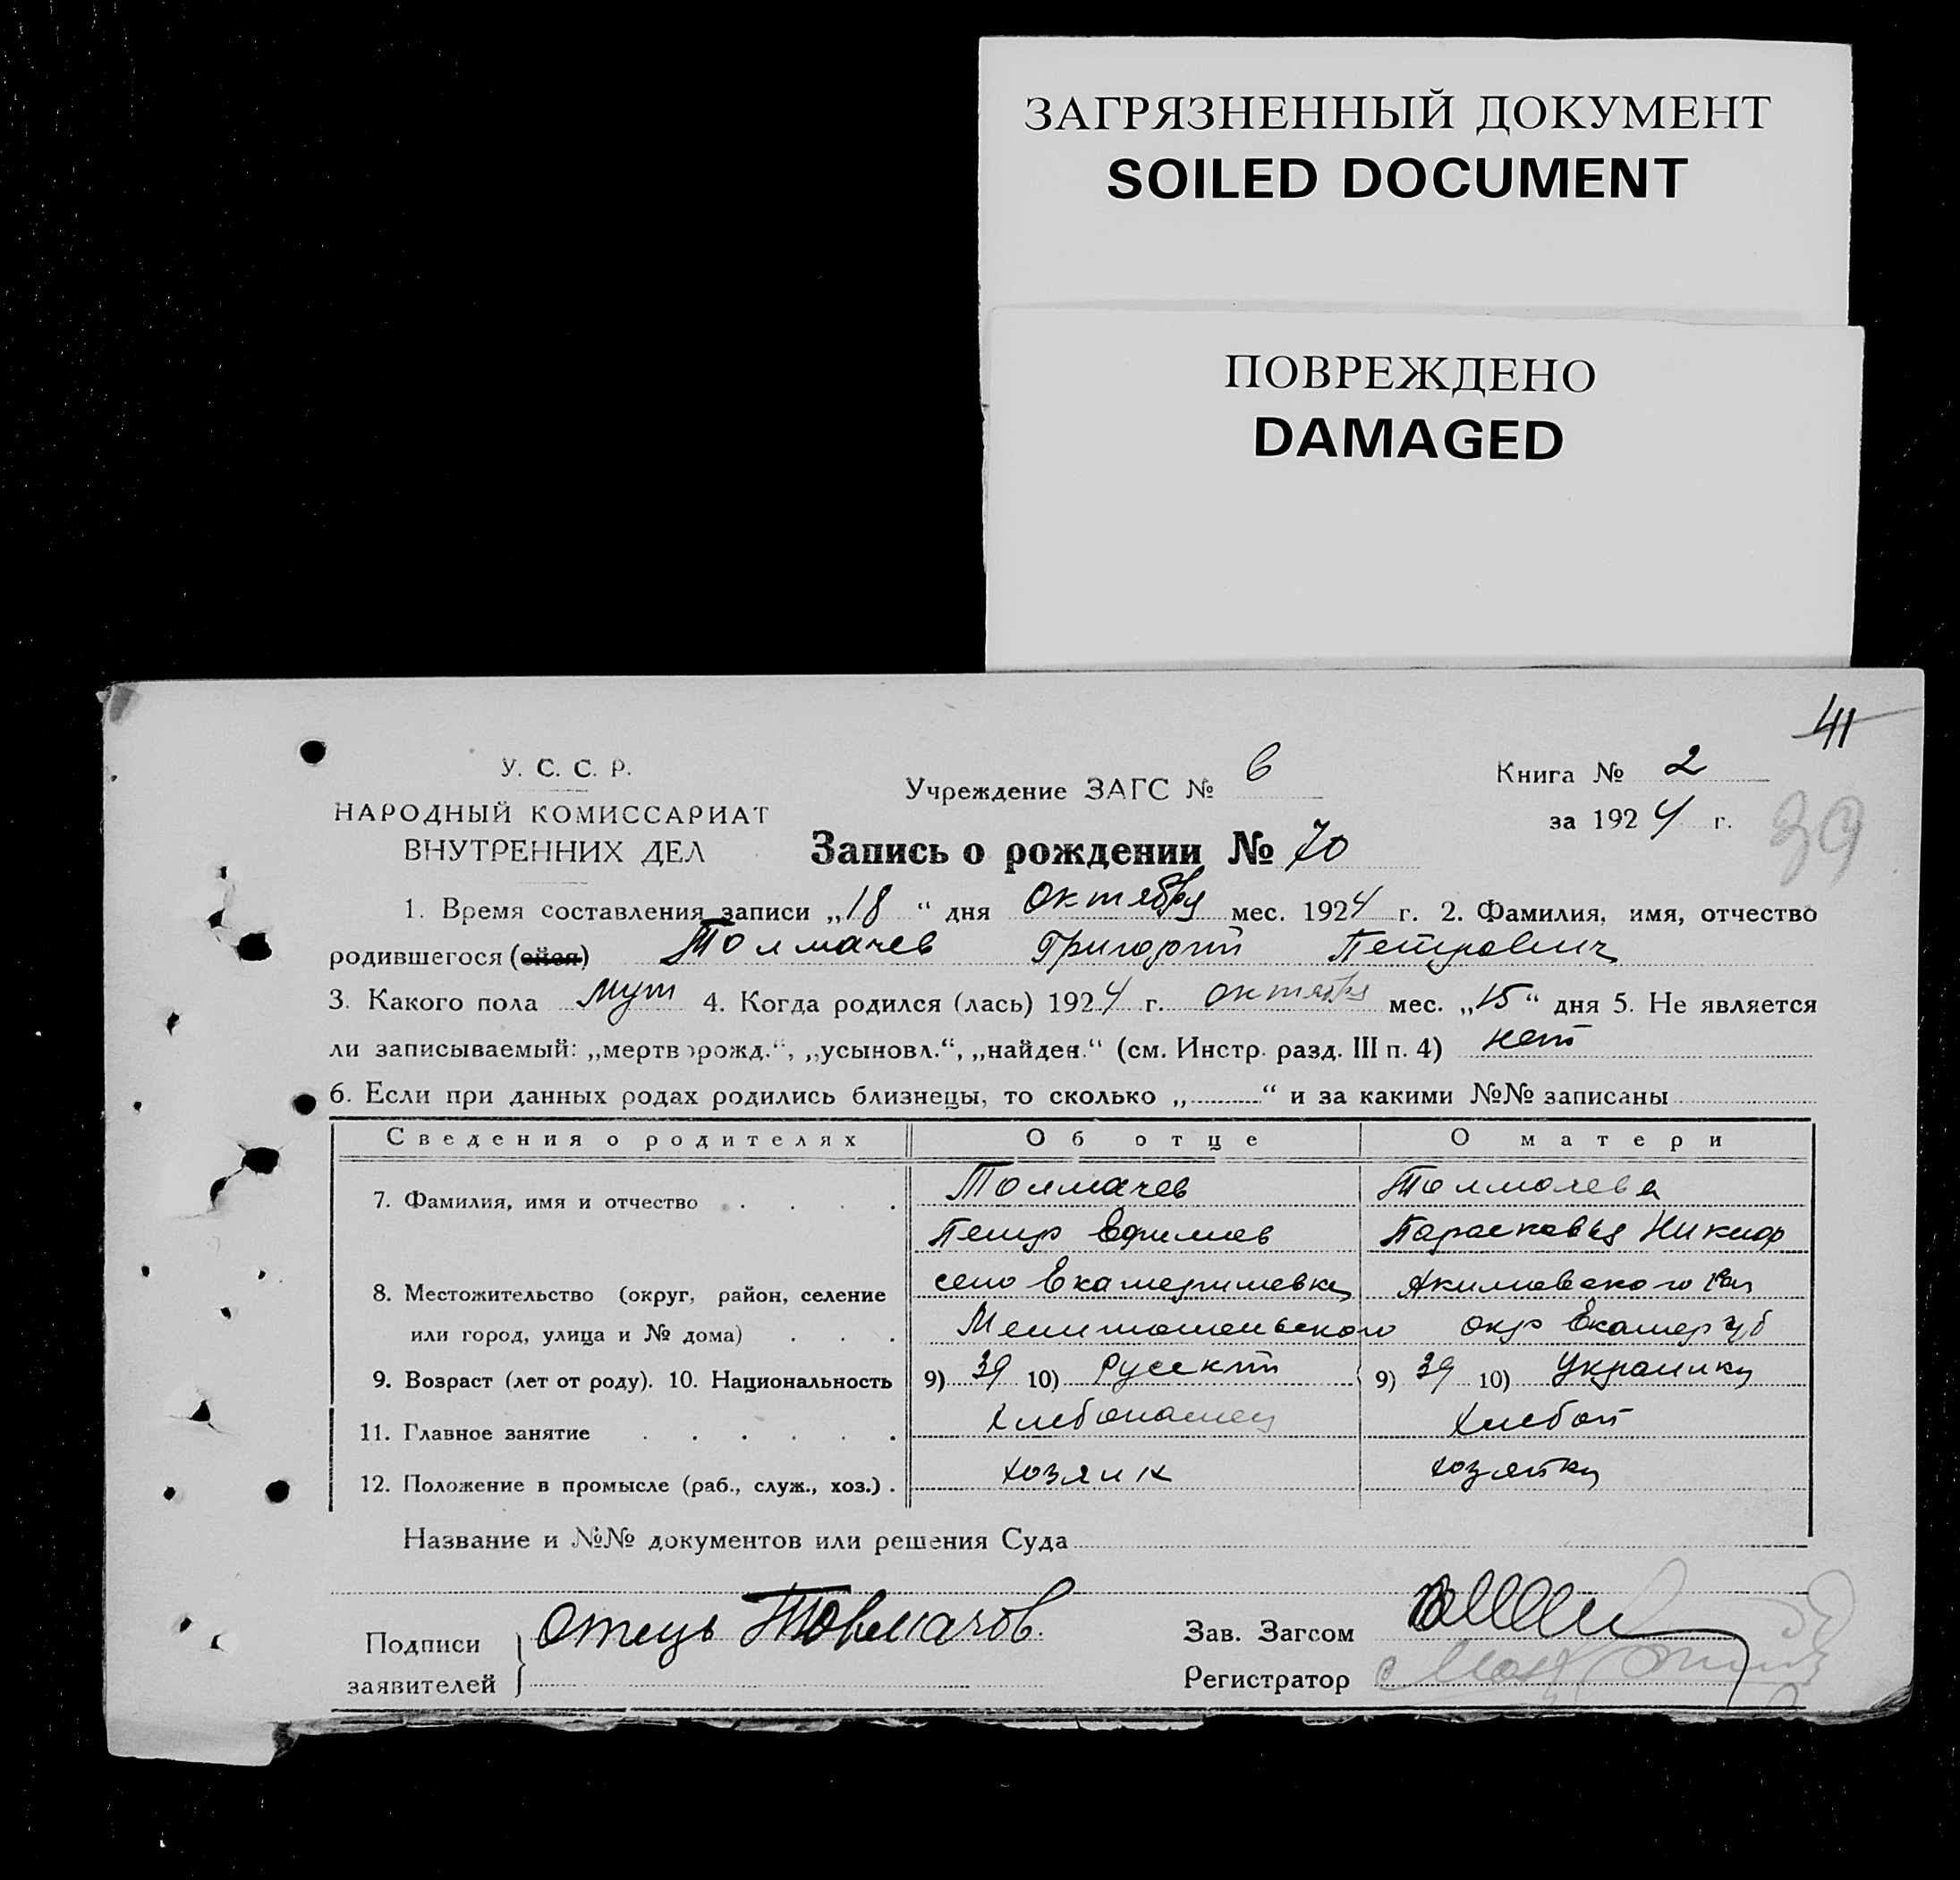 ЗАГРЯЗНЕННЫЙ ДОКУМЕНТ
SOILED DOCUMENT
ПОВРЕЖДЕНО
DAMAGED
41
39
У. С. С. Р.
НАРОДНЫЙ КОМИССАРИАТ
ВНУТРЕННИХ ДЕЛ
Учреждение ЗАГС № 6
Книга № 2
за 1924 г.
Запись о рождении № 70
1. Время составления записи „18“ дня Октября мес. 1924 г. 2. Фамилия, имя, отчество
родившегося (ойся) Толмачев Григорий Петрович
3. Какого пола муж 4. Когда родился (лась) 1924 г. октября мес. „15“ дня 5. Не является
ли записываемый: „мертворожд.“, „усыновл.“, „найден.“ (см. Инстр. разд. III п. 4) нет
6. Если при данных родах родились близнецы, то сколько „ “ и за какими №№ записаны
Сведения о родителях Об отце О матери
7. Фамилия, имя и отчество Толмачев Толмачева
Петр Ефимов Парасковья Никиф
8. Местожительство (округ, район, селение село Екатериновка Акимовского рай
или город, улица и № дома) Мелитопольского окр Екатер губ
9. Возраст (лет от роду). 10. Национальность 9) 39 10) Русский 9) 39 10) Украинка
11. Главное занятие Хлебопашец Хлебоп
12. Положение в промысле (раб., служ., хоз.) хозяин хозяйка
Название и №№ документов или решения Суда
Подписи заявителей отець Товмачов
Зав. Загсом
Регистратор